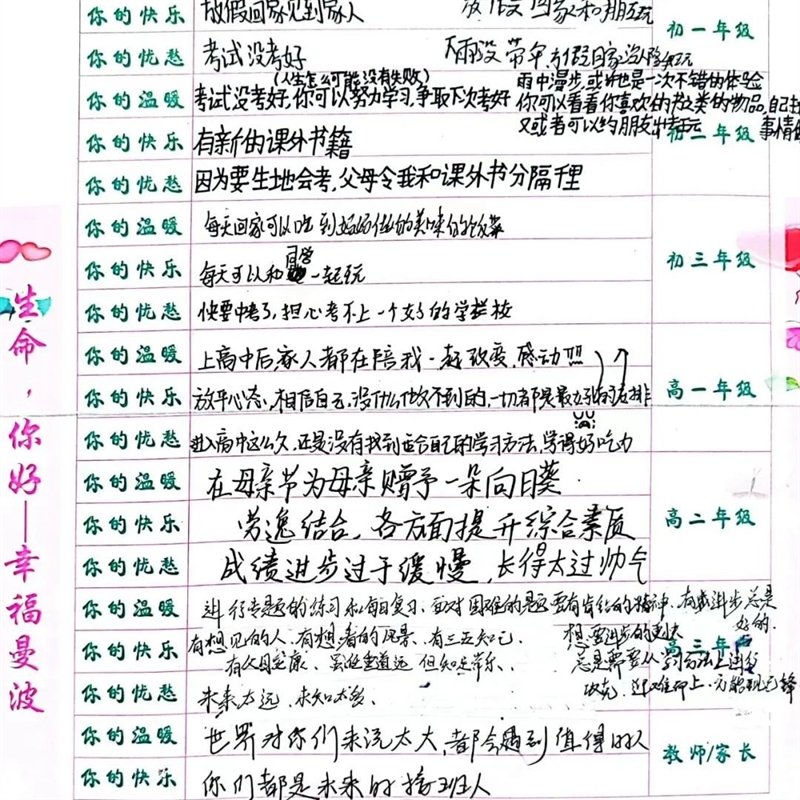 你的快乐 放假回家见到家人 放假回家和朋友玩
初一年级
你的忧愁 考试没考好 下雨没带伞
(人生怎么可能没有失败)
你的温暖 考试没考好,你可以努力学习,争取下次考好
雨中漫步,或许也是一次不错的体验
你可以看看你喜欢的书之类的物品,自己
又或者可以约朋友出去玩 事情
初二年级
你的快乐 有新的课外书籍
你的忧愁 因为要生地会考,父母令我和课外书分隔千里
你的温暖 每天回家可以吃到妈妈做的美味的饭菜
同学
你的快乐 每天可以和一起玩
初三年级
你的忧愁 快要中考了,担心考不上一个好的学校
你的温暖 上高中后,家人都在陪我一起改变,感动!!!
你的快乐 放平心态,相信自己,没什么做不到的,一切都是最好的安排
高一年级
你的忧愁 进入高中这么久,还是没有找到适合自己的学习方法,学得好吃力
你的温暖 在母亲节为母亲赠予一朵向日葵.
你的快乐 劳逸结合,各方面提升综合素质
高二年级
你的忧愁 成绩进步过于缓慢,长得太过帅气
你的温暖 进行专题的练习和每日复习、面对困难的题要有肯钻的精神、有进步总是好的.
你的快乐 有想见的人、有想看的风景、有三五知己、
有父母安康、虽任重道远 但知足常乐、
想要进步的更快
总是需要从学习方法上进行
攻克,迎难而上,
高三年级
你的忧愁 未来太远、未知太多、
你的温暖 世界对你们来说太大,都会遇到值得的人
教师/家长
你的快乐 你们都是未来的接班人
生命,你好—幸福曼波